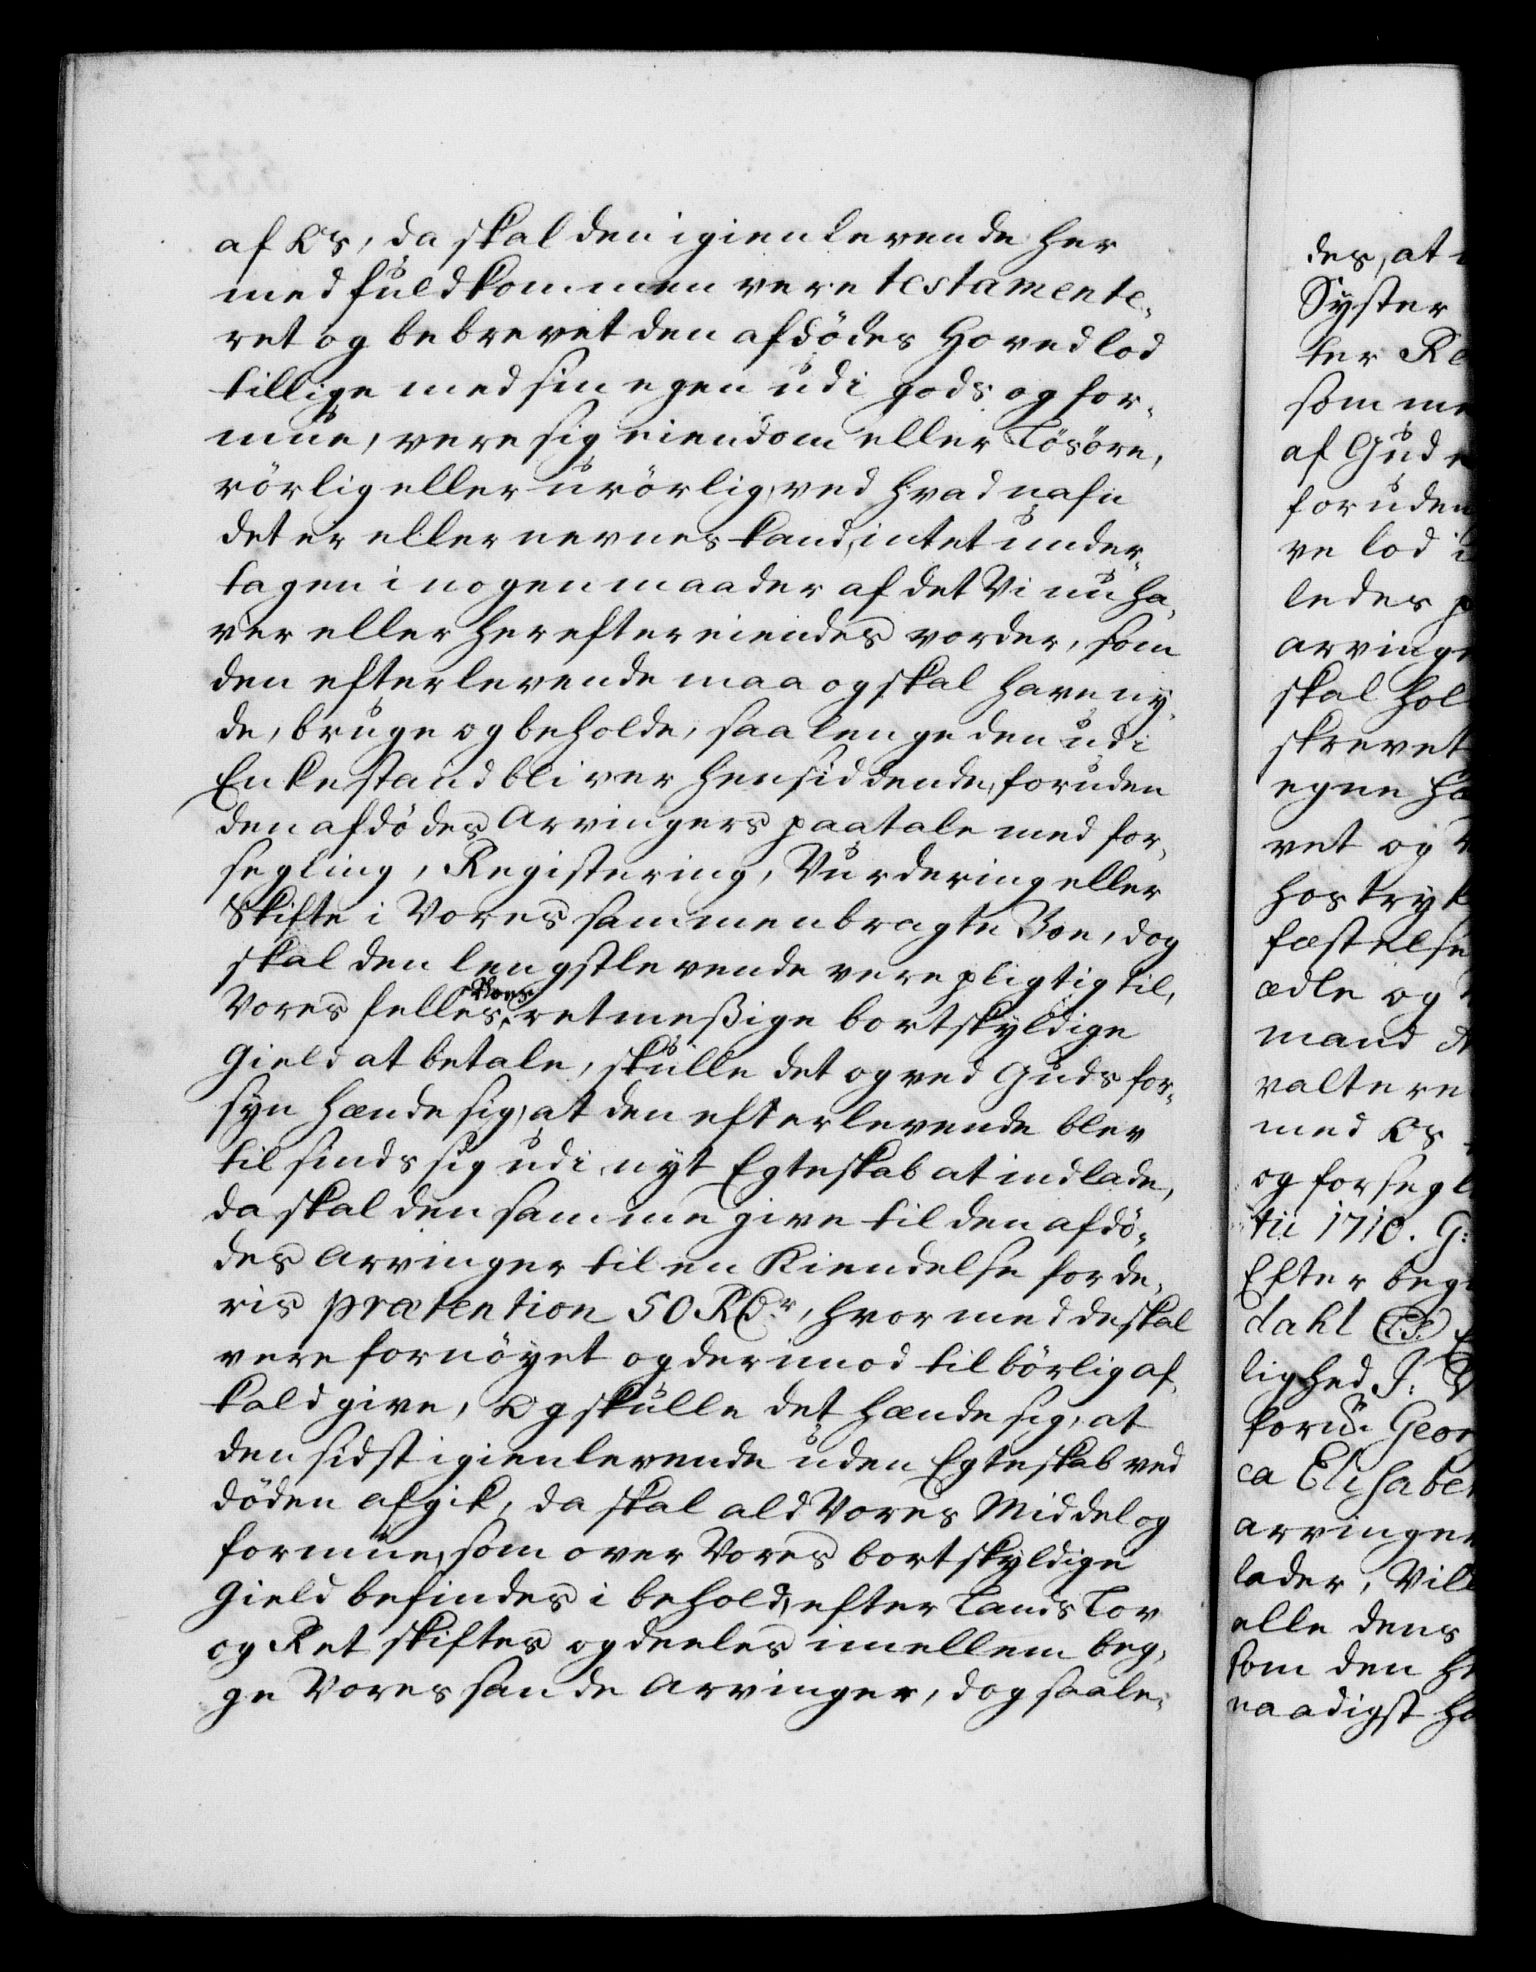 af Os, da skal den igienlevende her
med fuldkommen vere testamente-
ret og bebrevet den afdödes Hovedlod
tillige med sin egen udi gods og for-
mue, vere sig eiendom eller Lösöre,
rörlig eller urörlig, ved hvad nafn
det er eller nevnes kand, intet under-
tagen i nogen maader af det Vi nu ha-
ver eller herefter eiendes vorder, som
den efterlevende maa og skal have ny-
de, bruge og beholde, saa lenge den udi
Enkestand bliver hensiddende, foruden
den afdödes Arvingers paatale med for-
segling, Registering, Vurdering eller
Skifte i Vores sammenbragte Boe, dog
skal den lengstlevende vere pligtig til,
Vores felles Boes retmeßige bortskyldige
Gield at betale, skulle det og ved Guds for-
syn hænde sig, at den efterlevende blev
til sinds sig udi nyt Egteskab at indlade,
da skal den samme give til den afdö-
des Arvinger til en Kiendelse for de-
ris prætention 50 Rdr, hvormed de skal
vere fornöyet og dermod tilbörlig af-
kald give, Og skulle det hænde sig, at
den sidst igienlevende uden Egteskab ved
döden afgik, da skal ald Vores Middel og
formue, som over Vores bortskyldige
Gield befindes i behold, efter Lands Lov
og Ret skiftes og deeles imellem beg-
ge Vores sande Arvinger, dog saale-
des, at
Syster
ter
som
af Gud
foruden
ve lod
ledes
arvinge
skal hol
skrevet
egne
vet og
hostryk
fæstelse
ædle og
mand
valtere
med Os
og forsegl
tii 1710. G:
Efter beg
dahl
lighed J:
forun Geor
ca Elisabet
arvinger
lader, Vill
alle dens
som den
naadigst